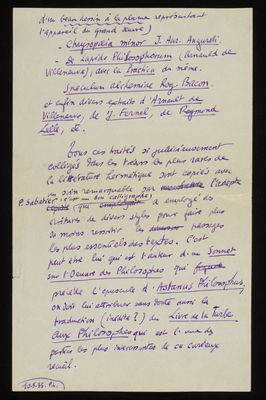 d'un beau dessin à la plume représentant
l'appareil du grand œuvre)
- Chrysopœia minor J. Aur. Augureli.
- De Lapide Philosophorum (Arnauld de
Villeneuve), avec la Practica du même.
Speculum alchemiae Rog. Bacon.
et enfin divers extraits d'Arnault de
Villeneuve, de J. Fernel, de Raymond
Lulle, etc.
Tous ces traités si judicieusement
colligés dans les trésors les plus rares de
la littérature hermétique sont copiés avec
un soin remarquable par l'adepte
P. Sabatier (c'est un bon calligraphe)
(qui a employé des
écritures de divers styles pour faire plus
ou moins ressortir les passages
les plus essentiels des textes. C'est
peut être lui qui est l'auteur d'un Sonnet
sur l'Oeuvre des Philosophes qui
précède l'opuscule d'Astanus Philosophus,
on doit lui attribuer sans doute aussi la
traduction (inédite ?) du Livre de la Turbe
aux Philosophes qui est l'une des
parties les plus intéressantes de ce curieux
recueil.